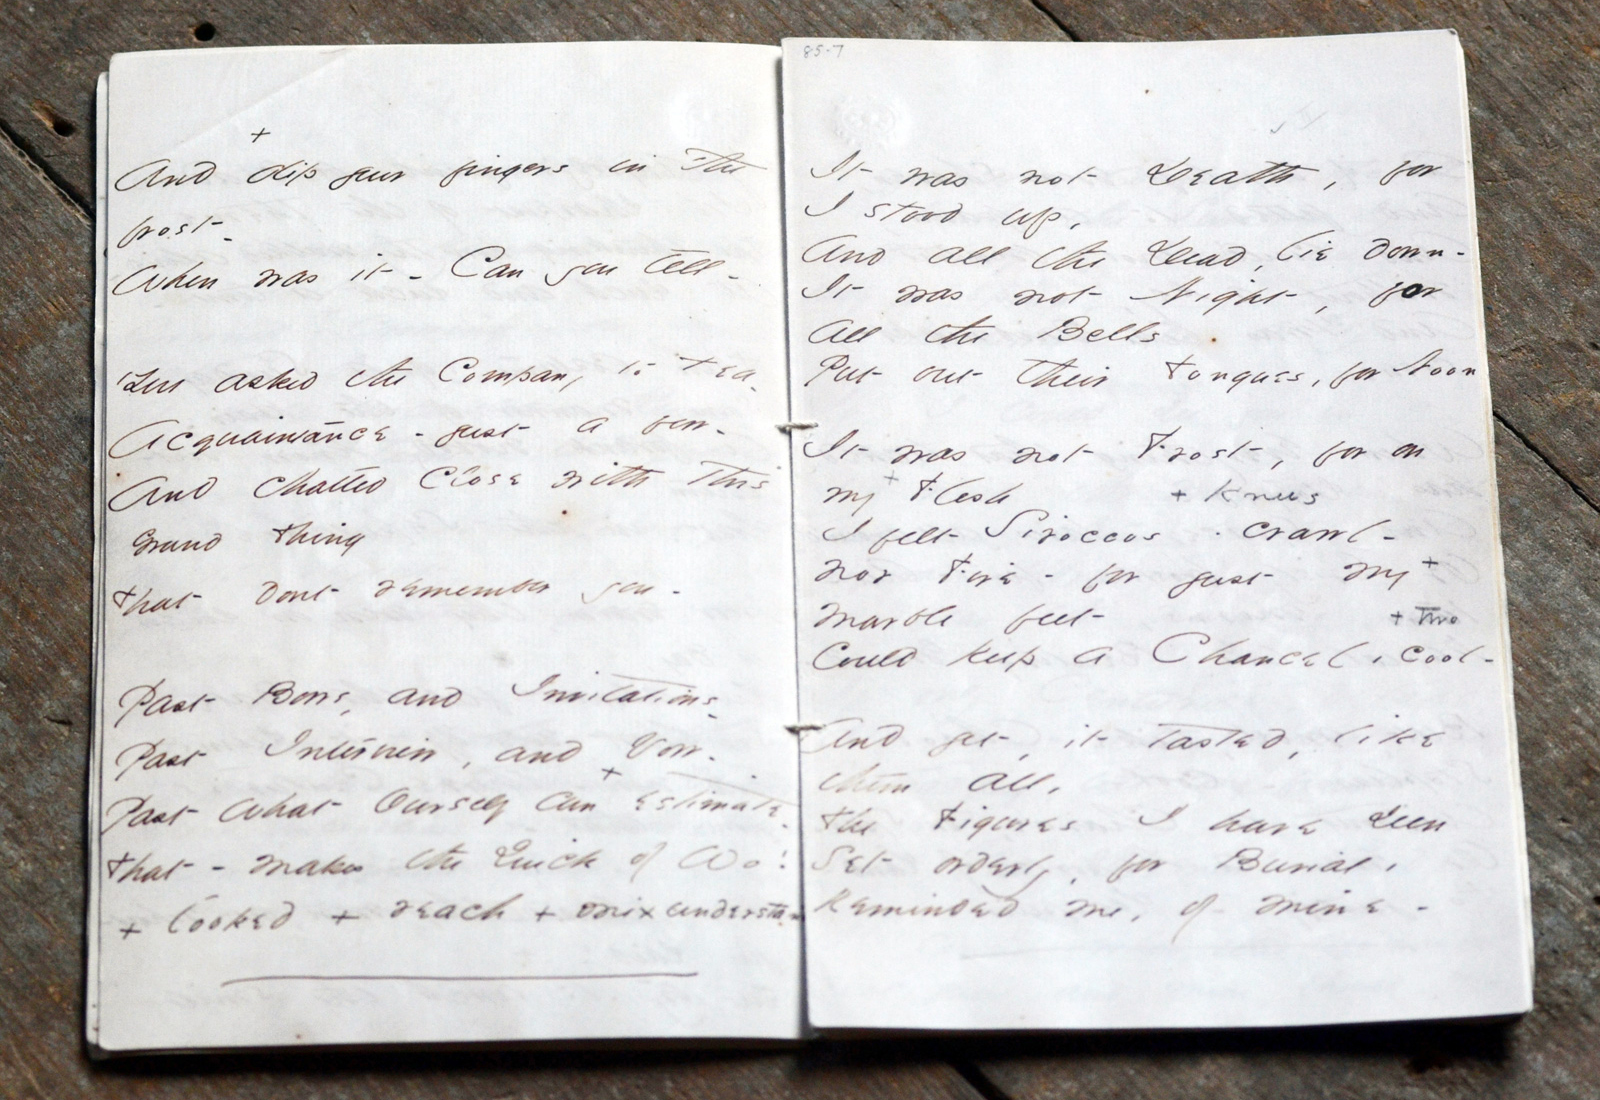 +
And dip your fingers in the
frost-
When was it - Can you tell -
Who asked the Company to tea -
Acquaintance - just a few -
And chatted close with this
Grand thing
That dont remember you -
Past Bows, and Invitations -
Past Interview, and Vow -
+
Past what Ourself can estimate -
That - makes the Quick of Wo!
+ looked + reach +
85-7
It was not Death, for
I stood up,
And all the Dead, lie down -
It was not Night, for
All the Bells
Put out their Tongues, for Noon
It was not Frost, for on
my + Flesh + Knees
I felt Siroccos - crawl -
Nor Fire - for just my +
marble feet + Two
Could keep a Chancel, cool -
And yet, it tasted, like
them all,
The Figures I have seen
Set orderly, for Burial,
Reminded me, of mine -